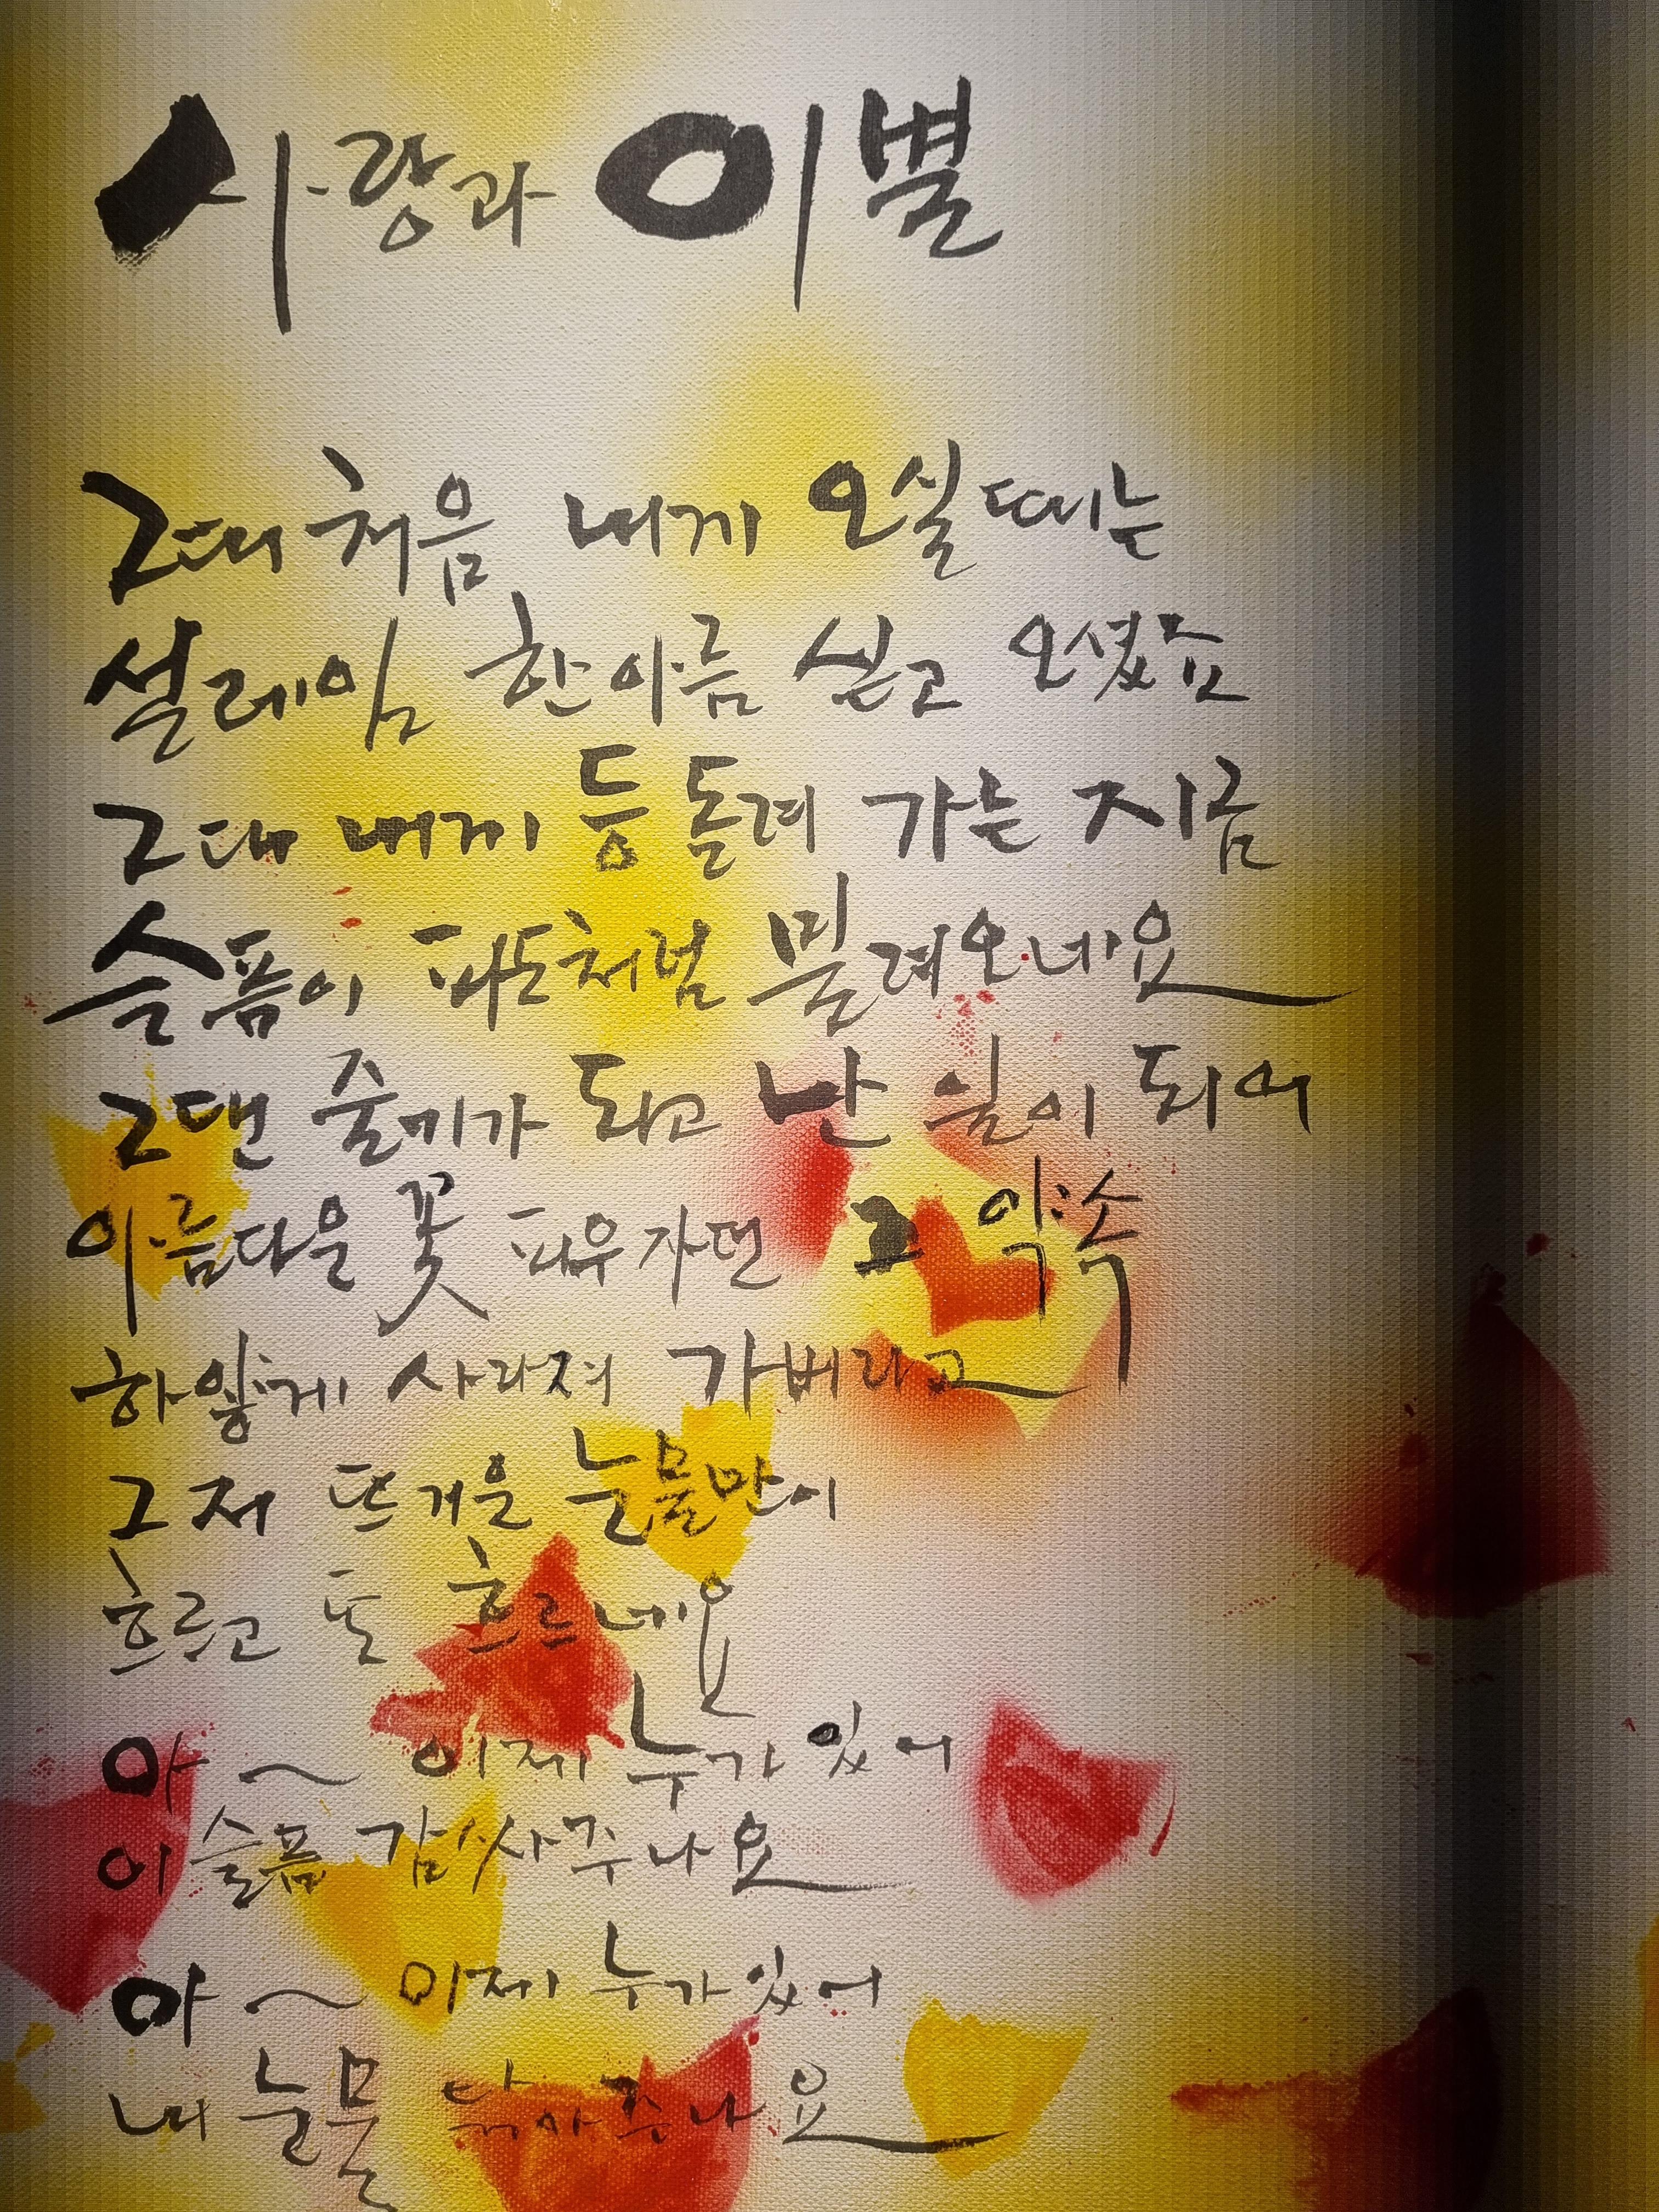 사랑과 이별
그대 처음 내게 오실때는
설레임 한아름 싣고 오셨죠
그대 내게 등 돌려 가는 지금
슬픔이 파도처럼 밀려오네요
그댄 줄기가 되고 난 잎이 되어
아름다운 꽃 피우자던 그 약속
하얗게 사라져 가버리고
그저 뜨거운 눈물만이
흐르고 또 흐르네요
아~ 이제 누가 있어
이 슬픔 감싸주나요
아~ 이제 누가 있어
내 눈물 닦아주나요